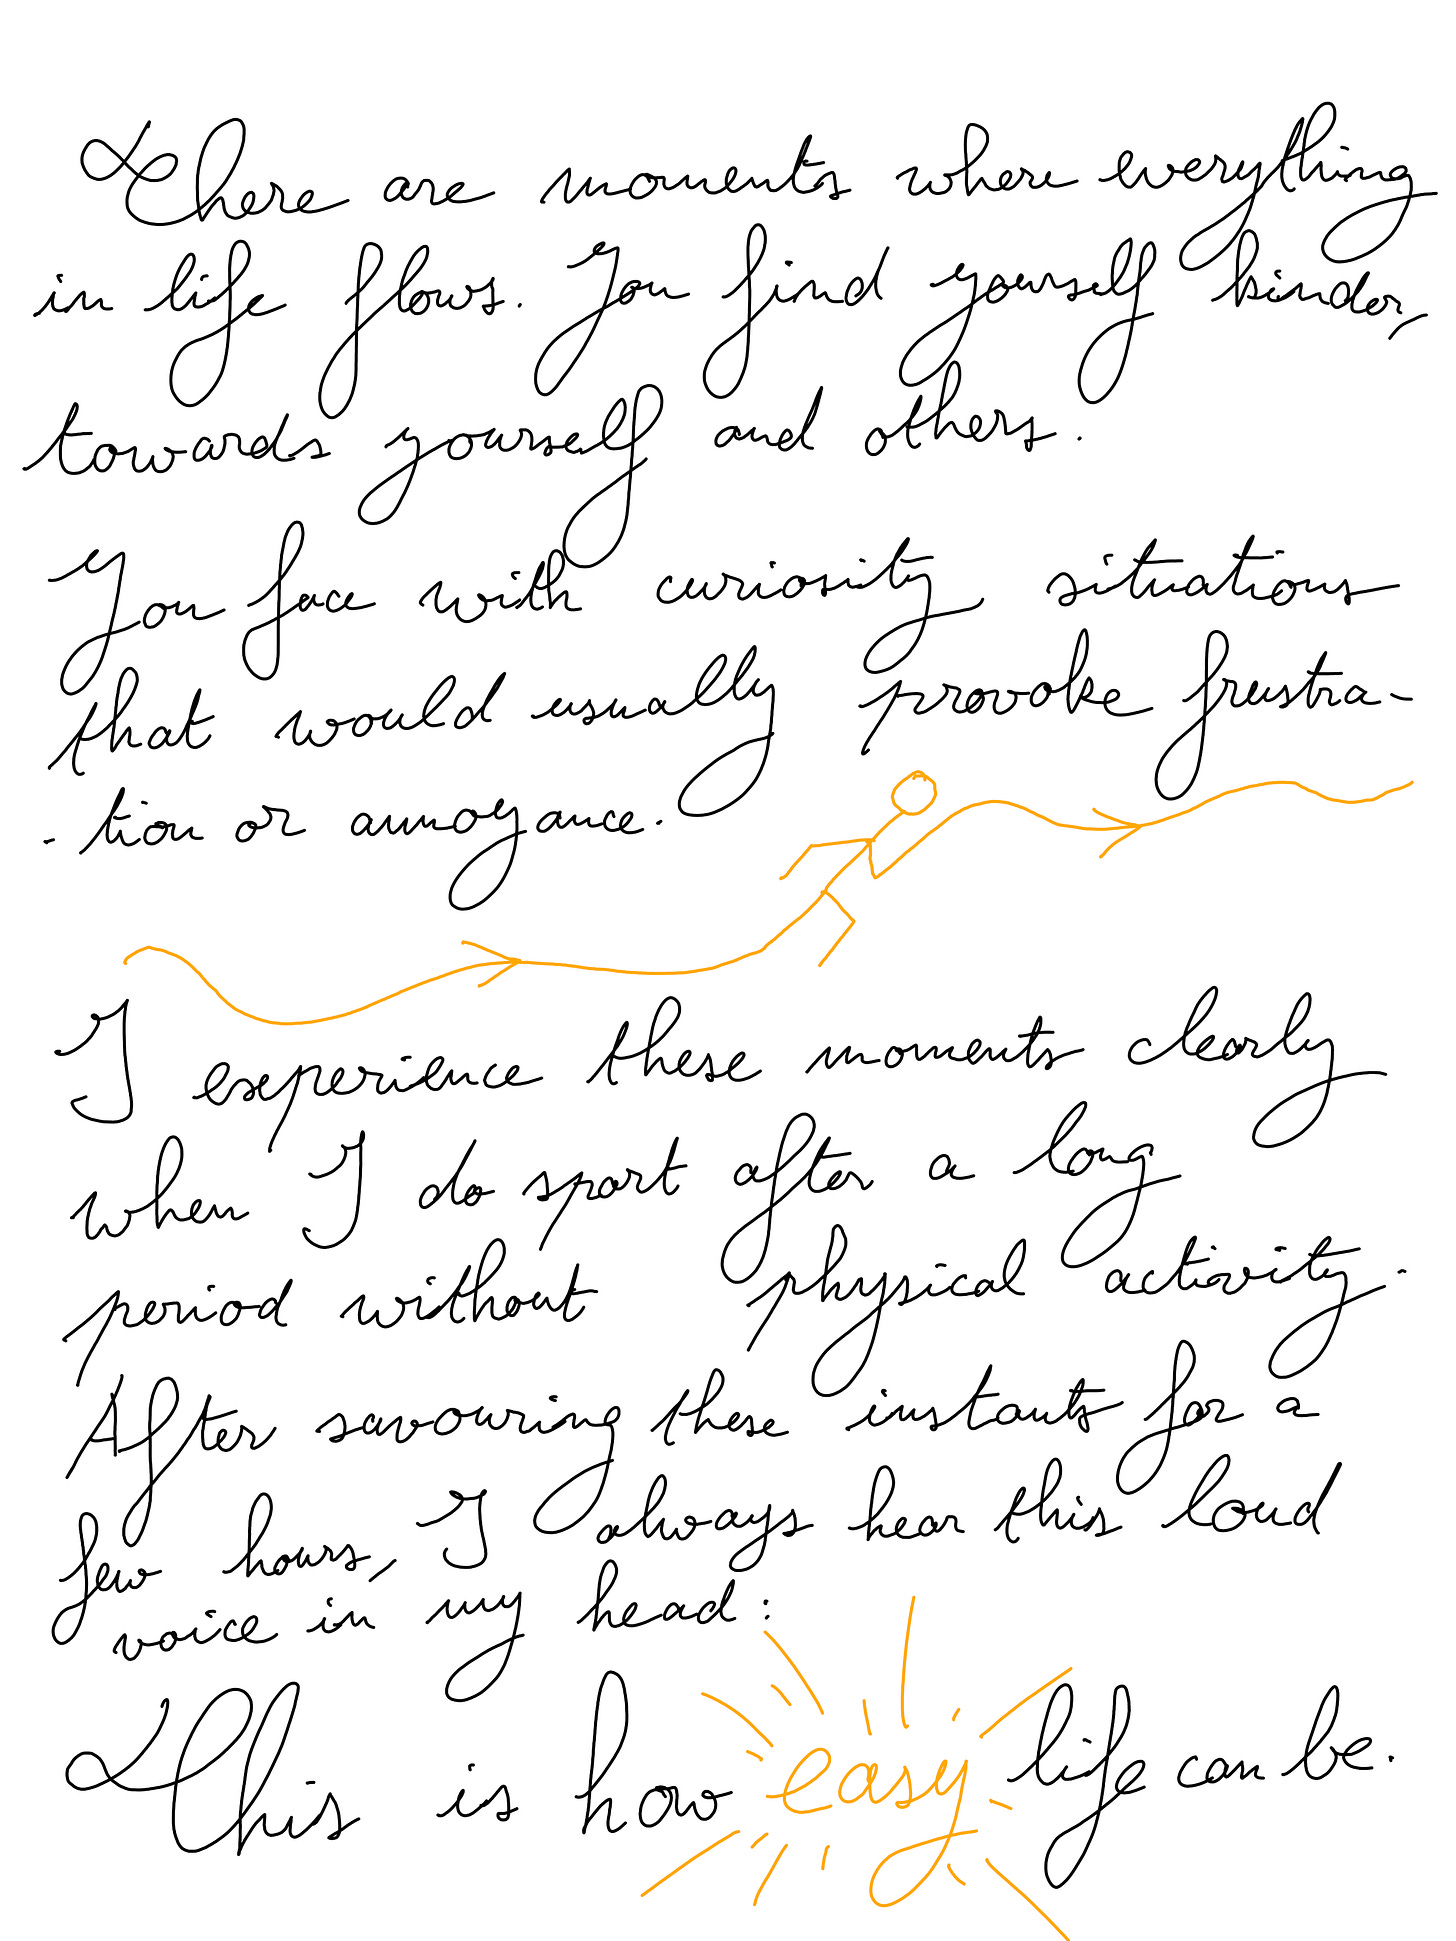 There are moments where everything
in life flows. You find yourself kinder,
towards yourself and others.
You face with curiosity situations
that would usually provoke frustra-
-tion or annoyance.
I experience these moments clearly
when I do sport after a long
period without physical activity.
After savouring these instants for a
few hours, I always hear this loud
voice in my head:
This is how easy life can be.